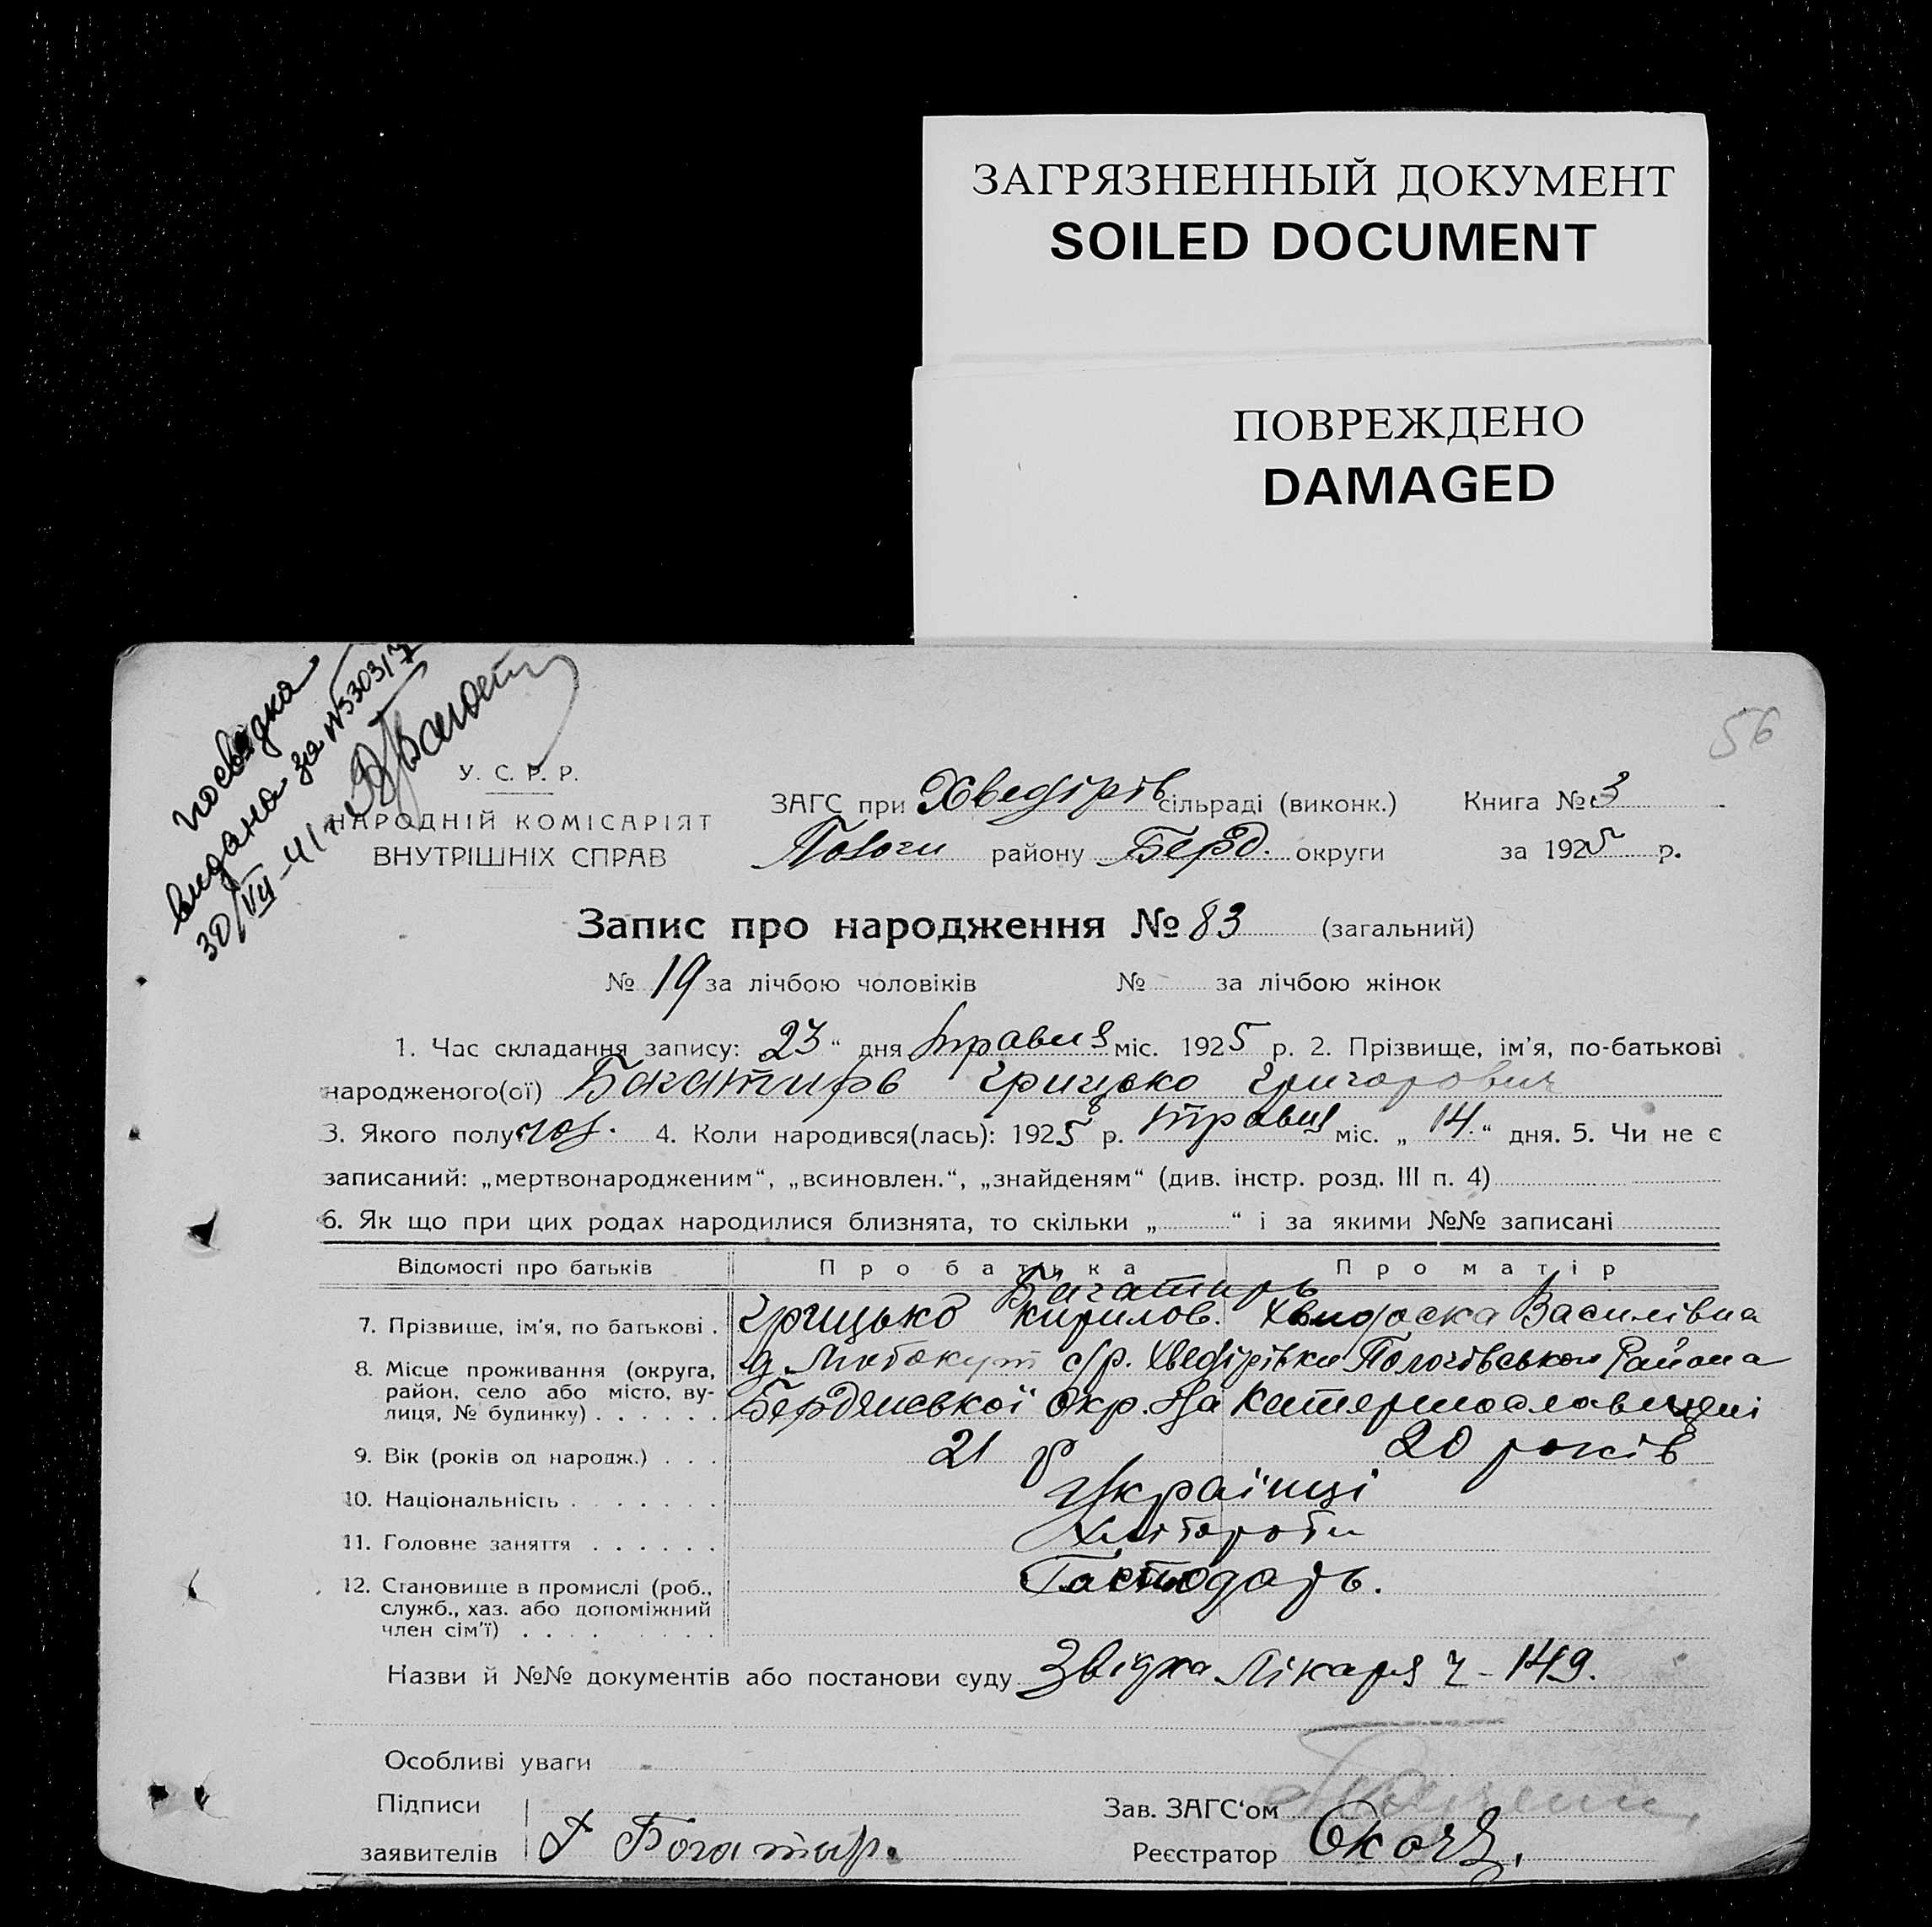 ЗАГРЯЗНЕННЫЙ ДОКУМЕНТ
SOILED DOCUMENT
ПОВРЕЖДЕНО
DAMAGED
посвідка
видана за №3303/7
30/VII-41 р.
56
У. С. Р. Р.
НАРОДНІЙ КОМІСАРІЯТ
ВНУТРІШНІХ СПРАВ
ЗАГС при Хведірів сільраді (виконк.) Книга № 3
Пологи району Берд. округи за 1925 р.
Запис про народження № 83 (загальний)
№ 19 за лічбою чоловіків № за лічбою жінок
1. Час складання запису: 23 “ дня травня міс. 1925 р. 2. Прізвище, ім'я, по-батькові
народженого(ої) Багатирь Грицько Григорович
3. Якого полу чол. 4. Коли народився(лась): 1925 р. травня міс. „ 14. “ дня. 5. Чи не є
записаний: „мертвонародженим“, „всиновлен.“, „знайденям“ (див. інстр. розд. III п. 4)
6. Як що при цих родах народилися близнята, то скільки „ “ і за якими №№ записані
Відомості про батьків Про батька Про матір
Багатирь
7. Прізвище, ім'я, по батькові . Грицько Кирилов. Василівна
8. Місце проживання (округа, с/р. Хведірівки Пологівського Района
район, село або місто, ву-
лиця, № будинку) . . . . . . Бердянської Окр. на Катеринославщені
9. Вік (років од народж.) . . . 21 р 20 років
10. Національність . . . . . . . Українці
11. Головне заняття . . . . . . Хлібороби
12. Становище в промислі (роб., Господарь.
служб., хаз. або допоміжний
член сім'ї) . . . . . . . .
Назви й №№ документів або постанови суду Звідка Лікаря ч - 149.
Особливі уваги
Підписи
Зав. ЗАГС‘ом
заявителів Богатир.
Реєстратор